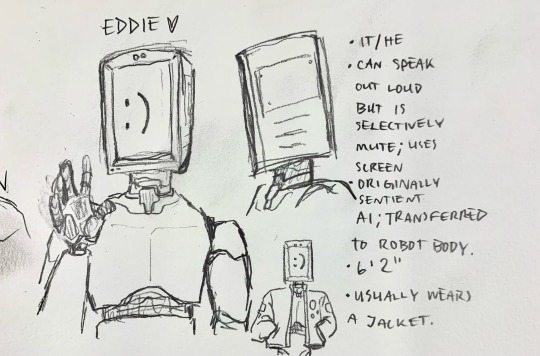 EDDIE ♥
• IT/HE
• CAN SPEAK
OUT LOUD
BUT IS
SELECTIVELY
MUTE; USES
SCREEN
• ORIGINALLY
SENTIENT
AI; TRANSFERRED
TO ROBOT BODY.
• 6'2"
• USUALLY WEARS
A JACKET.